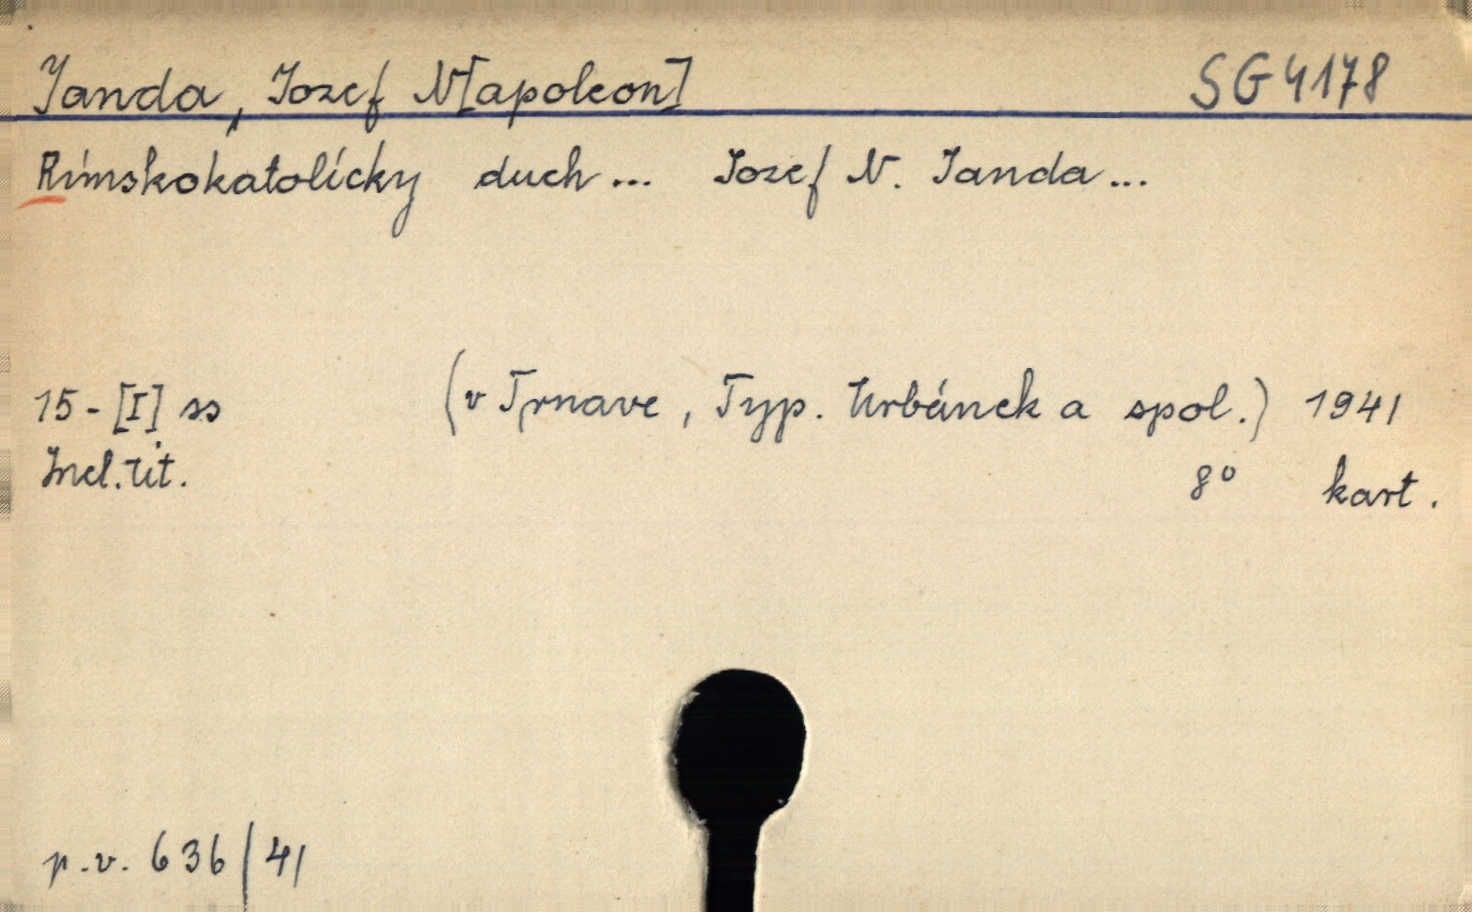 Janda, Jozef N[apoleon] SG 4178
Rímskokatolícky duch... Jozef N. Janda...
15-[I] ss (v Trnave, Typ. Urbánek a spol.) 1941
Incl. tit. 8° kart.
p.v. 636/41